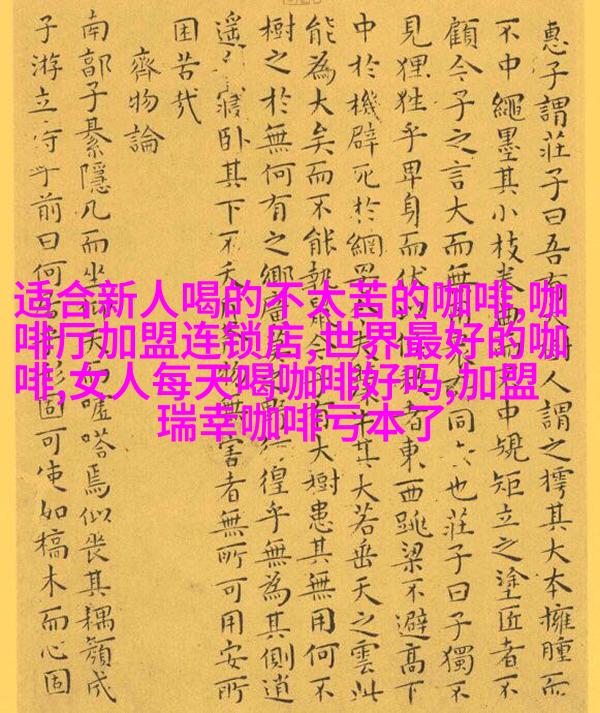 适合新人喝的不太苦的咖啡,咖
啡厅加盟连锁店,世界最好的咖
啡,女人每天喝咖啡好吗,加盟
瑞幸咖啡亏本了
惠子謂莊子曰吾有人謂之樗其大本擁腫而
不中繩墨其小枝中規矩立之塗匠者不
顧今子之言大而無同也莊子曰子獨不
見狸狌乎卑身而伏者東西跳梁不避高下
中於機辟死於網牛其大若垂天之雲此
能為大矣而不能大樹患其無用何不
樹之於無何有之鄉徨乎無為其側逍
遥寢卧其下不無害者無所可用安所
困苦哉
齊物論
南郭子綦隱几而坐仰天噓嗒焉似喪其耦顏成
子游立侍乎前曰何形固可使如槁木而心固